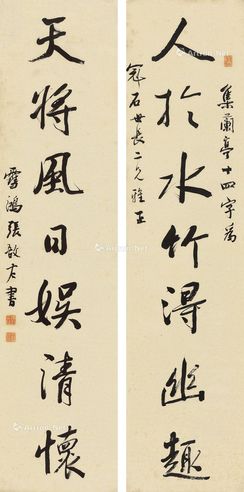 集蘭亭十四字為
人於水竹得幽趣
冠石世長二兄雅正
天將風日娛清懷
雪鴻張啟